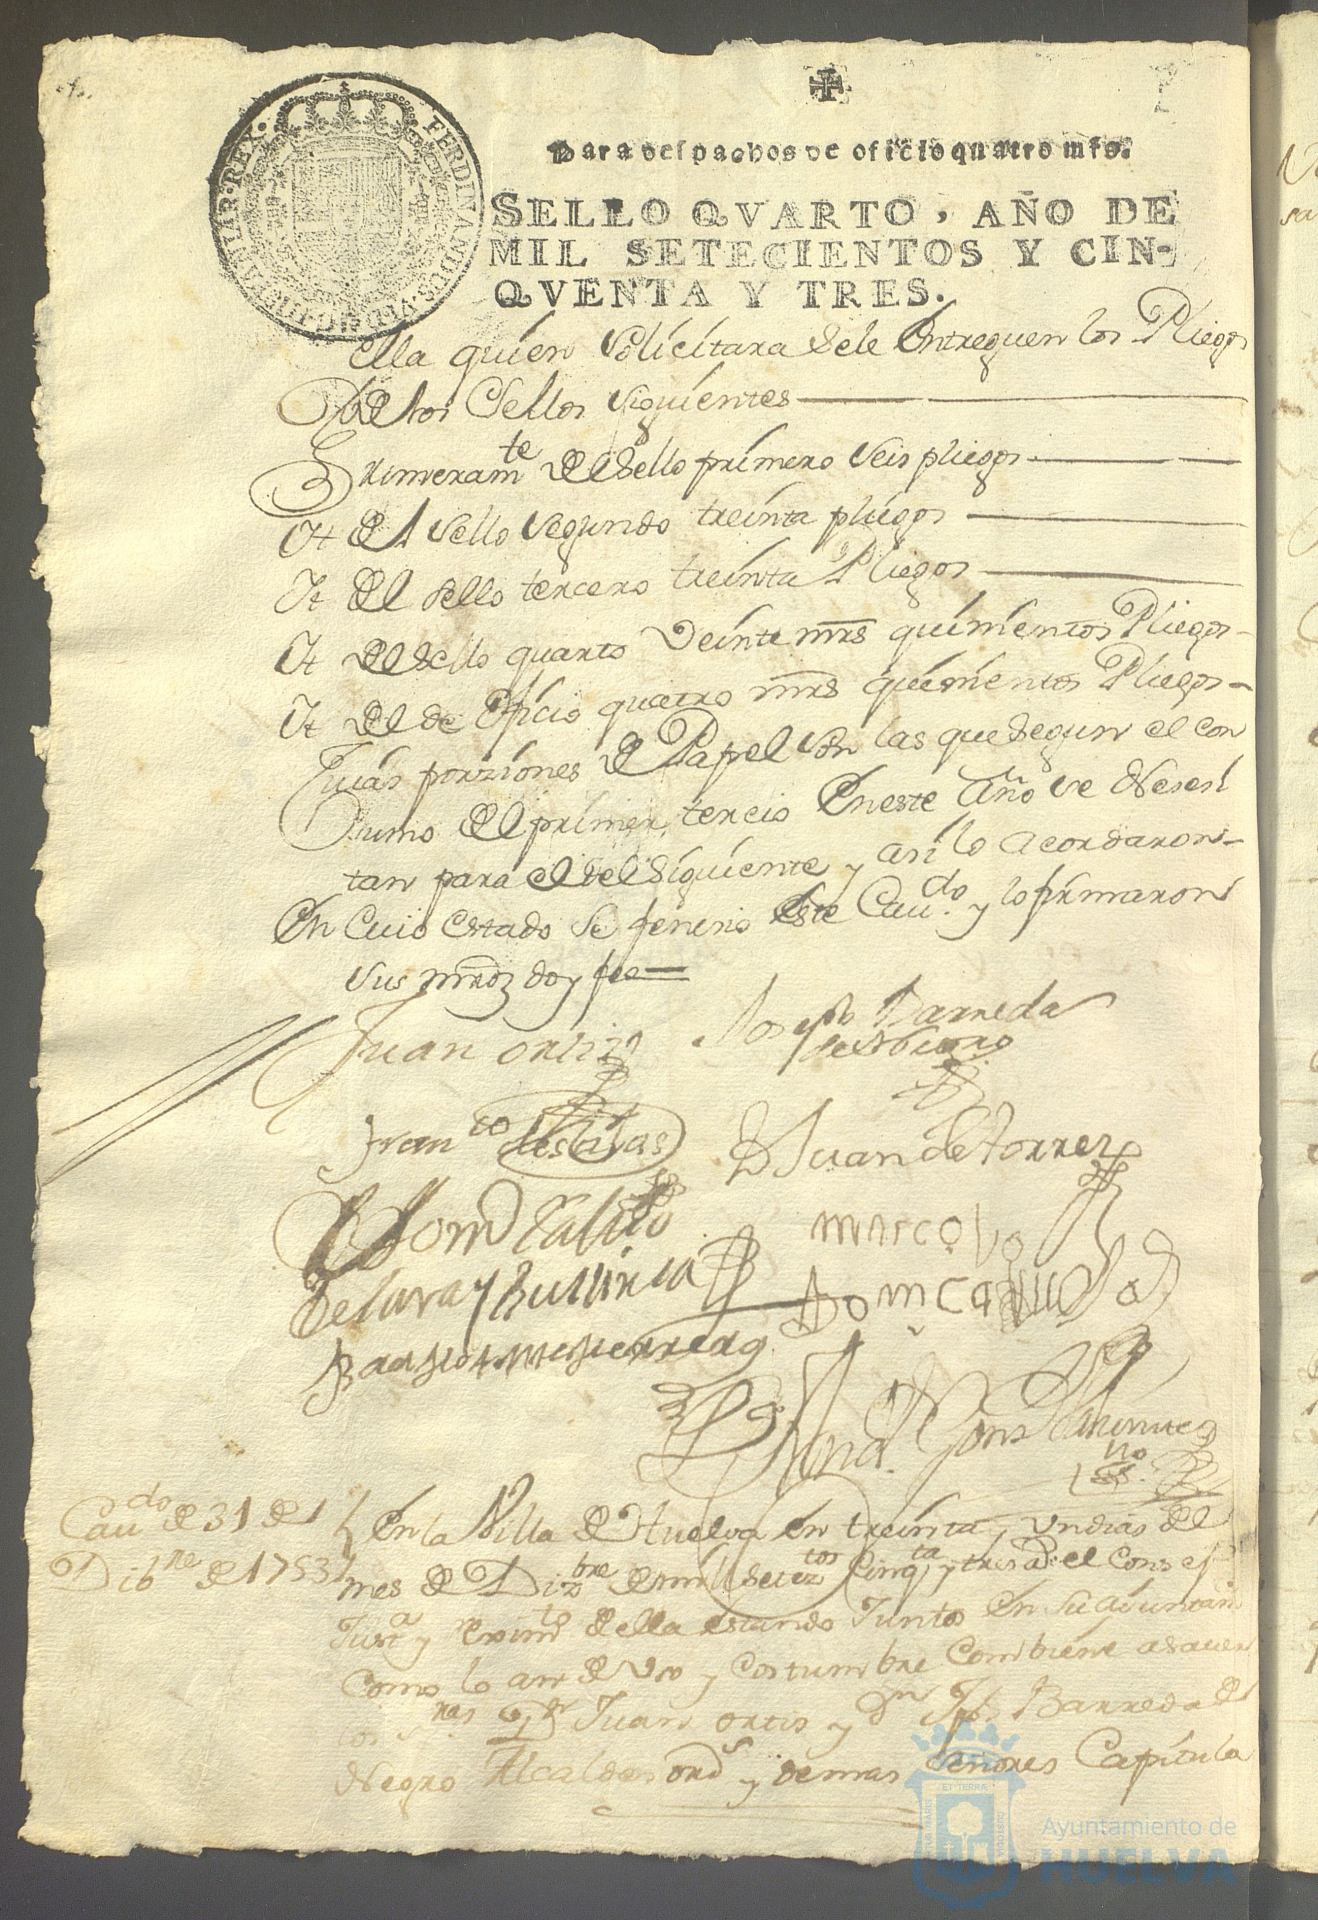 FERDINANDUS·VI·D·G·HISPANIAR·REX·
Para despachos de oficio quatro mrs.
SELLO QVARTO, AÑO DE
MIL SETECIENTOS Y CIN-
QVENTA Y TRES.
ella quien Solicitara sele Entreguen los Pliegos
De los Sellos siguientes
Primeramte del Sello primero Seis pliegos
Yt del Sello Segundo treinta pliegos
Yt del Sello tercero treinta Pliegos
Yt del Sello quarto Veinte mrs quinientos Pliegos
Yt del de Oficio quatro mrs quinientos Pliegos
Cuias porziones de Papel Son las que Segun el con
sumo del primer tercio En este Año se Nesesi
tan para el del Siguiente y asi lo acordaron
En cuio estado Se fenecio Este Caudo. y lo firmaron
Sus mrdz doy fee
Juan ortiz
Joseph Barreda
franco
Dn Juan de torres
de Lara y
Marco
Domco
Caudo de 31 de
Dibre de 1753
En la Villa de Huelva En treinta y un dias del
mes de Dizbre de mil Seteztos Cinqta y tres as el Consejo
Justa y Reximto de ella estando Juntos En Su aiuntam
Como lo an de Uso y Costumbre Combiene asaver
los Sres Juan ortis y Dn Jph Barreda
Negro Alcaldes ords y demas Señores Capitula
Ayuntamiento de
HUELVA